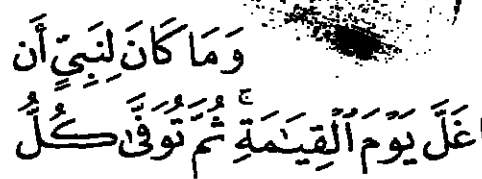 وَمَا كَانَ لِنَبِيٍّ أَن
غَلَّ يَوْمَ ٱلْقِيَـٰمَةِ ۚ ثُمَّ تُوَفَّىٰ كُلُّ